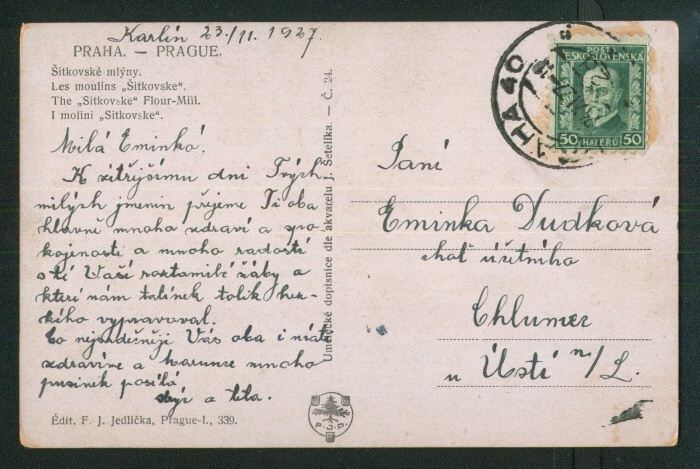 Karlín 23./11. 1927.
PRAHA. — PRAGUE.
Šítkovské mlýny.
Les moulins „Šítkovske".
The „Sítkovske" Flour-Mill.
I molini „Sítkovske".
Milá Eminko!
K zítřejšímu dni Tvých
milých jmenin přejeme Ti oba
hlavně mnoho zdraví a spo-
kojenosti a mnoho radosti
od Vaší roztomilé žáby a
které nám tatínek tolik hez-
kého vypravoval.
Co nejsrdečněji Vás oba i
zdravíme a mnoho
pusinek posílá
strýc a teta.
Édit. F. J. Jedlička, Prague-I., 339.
F.J.P.
Umělecké dopisnice dle akvarelu J. Šetelíka. — Č. 24.
PRAHA 40
POŠTA
ČESKOSLOVENSKÁ
50 HALÉŘŮ 50
Paní
Eminka Dudková
choť účetního
Chlumec
u Ústí n/L.